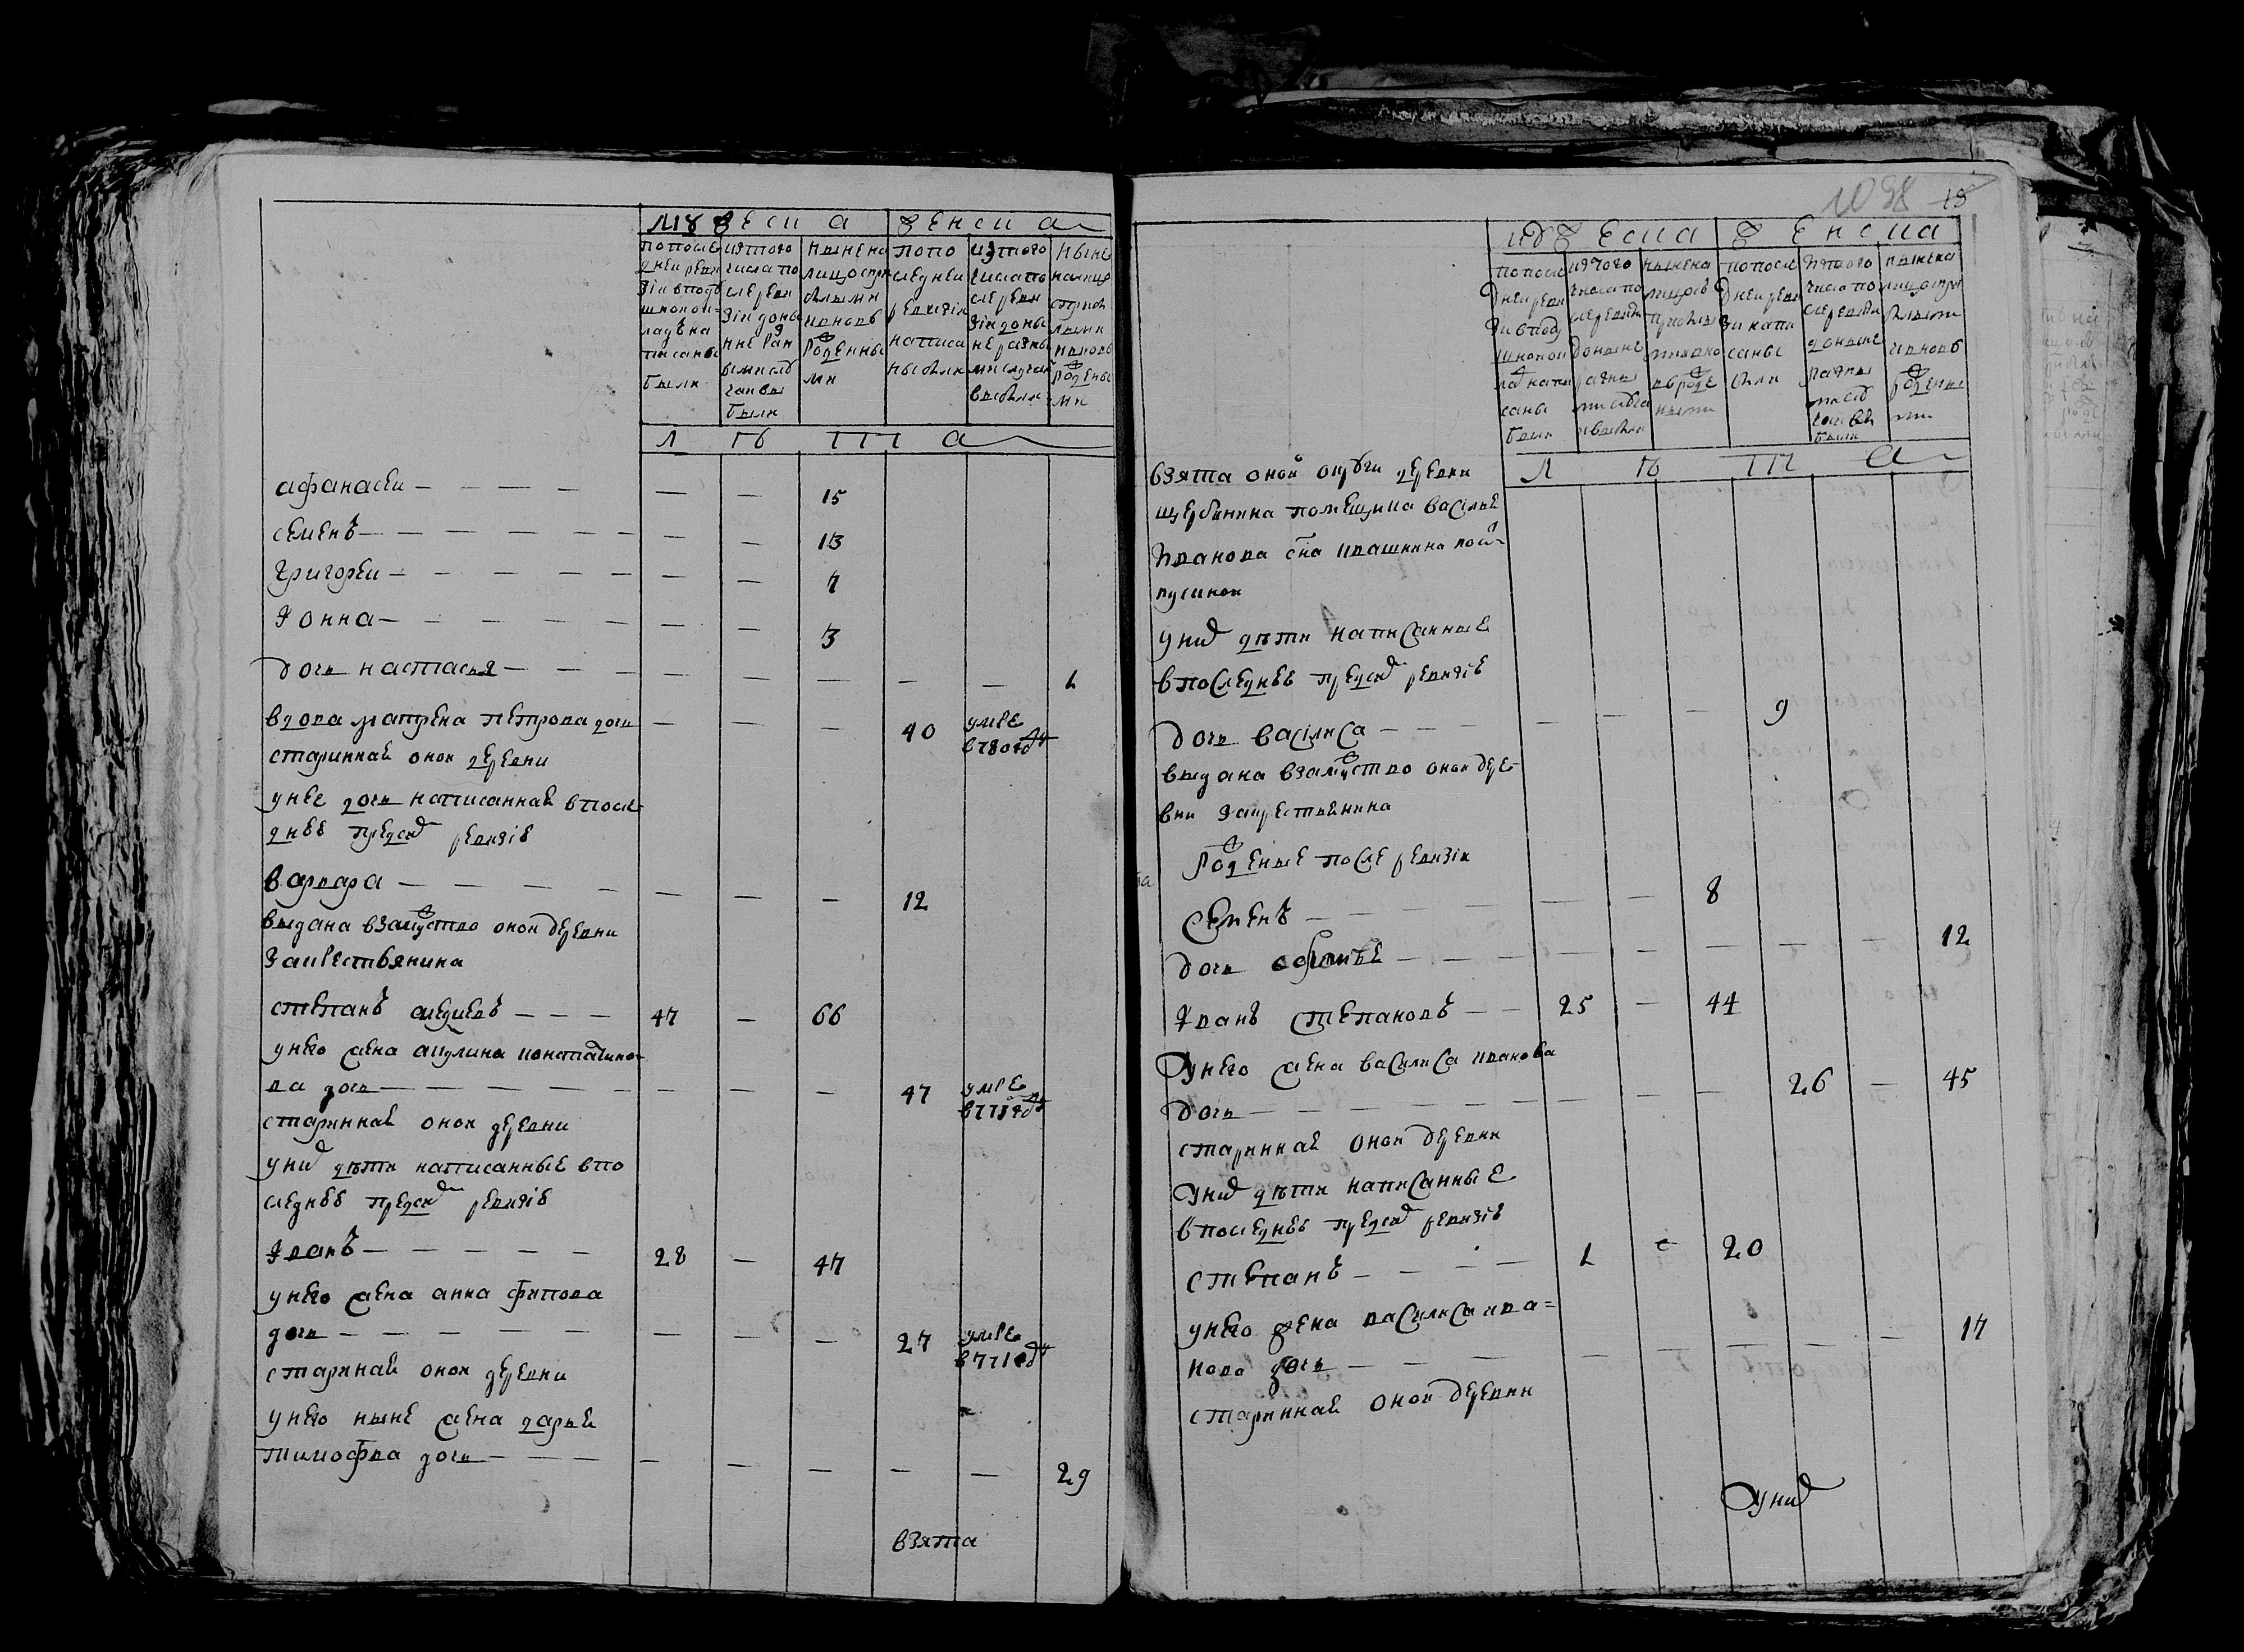 мужеска
женска
по после
дней реви
зіи в поду
шной ок
ладъ на
писаны
были
ис того
числа по
сле реви
зіи до ны
нѣ раз
ными слу
чаи вы
были
ныне на
лицо с при
былыми
и вновь
рожденны
ми
по по
следней
ревизіи
написа
ны были
из того
числа по
сле реви
зіи до ны
не разны
ми случаи
выбыли
ныне
на лицо
с прибы
лыми
и вновь
рожденны
ми
л ѣ т а
афанасеи — — — — — — 15
семенъ — — — — — — — 13
григореи — — — — — — — 7
иона — — — — — — — 3
дочь настасья — — — — — — — — 1
вдова матрена петрова дочь — — — 40 умре
в 780 году
стариннай оной деревни
у нее дочь написаннай в после
днеѣ пред сим ревизіѣ
варвара — — — — — — — 12
выдана в замужство оной деревни
за крестьянина
степанъ — — — 47 — 66
у него жена акулина констатино
ва дочь — — — — — — — — 47 умре
стариннай оной деревни
у них дети написанные в по
следнеѣ пред сим ревизіѣ
иванъ — — — — — 28 — 47
у него жена анна
дочь — — — — — — — — 27 умре
стариннай оной деревни
у него ныне жена дарья
тимофева дочь — — — — — — — — 29
взята
1098
мужеска
женска
по после
дней реви
зіи в поду
шной ок
лад напи
саны
были
ис того
числа по
сле ревизи
до ныне
разны
ми случа
и выбыли
ныне на
лицо с
прибылы
ми и вно
вь рожде
ными
по после
дней реви
зіи напи
саны
были
ис того
числа по
сле ревизи
до ныне
разны
ми слу
чаи вы
были
ныне на
лицо с при
былыми
и вновь
рожденны
ми
л ѣ т а
взята оной округи деревни
щербинина помещика василья
иванова сна ивашкина по от
пускной
у них дети написанные
в последнеѣ пред сим ревизіѣ
дочь василиса — — — — — 9
выдана в замужство оной дере
вни за крестьянина
рожденые после ревизіи
семенъ — — — — — — 8
дочь — — — — — — — — 12
иванъ степановъ — — 25 — 44
у него жена василиса иванова
дочь — — — — — — — — — 26 — 45
стариннай оной деревни
у них дети написанные
в последнеѣ пред сим ревизіѣ
степанъ — — — — 1 — 20
у него жена василиса ива=
нова дочь — — — — — — — — 17
стариннай оной деревни
у них